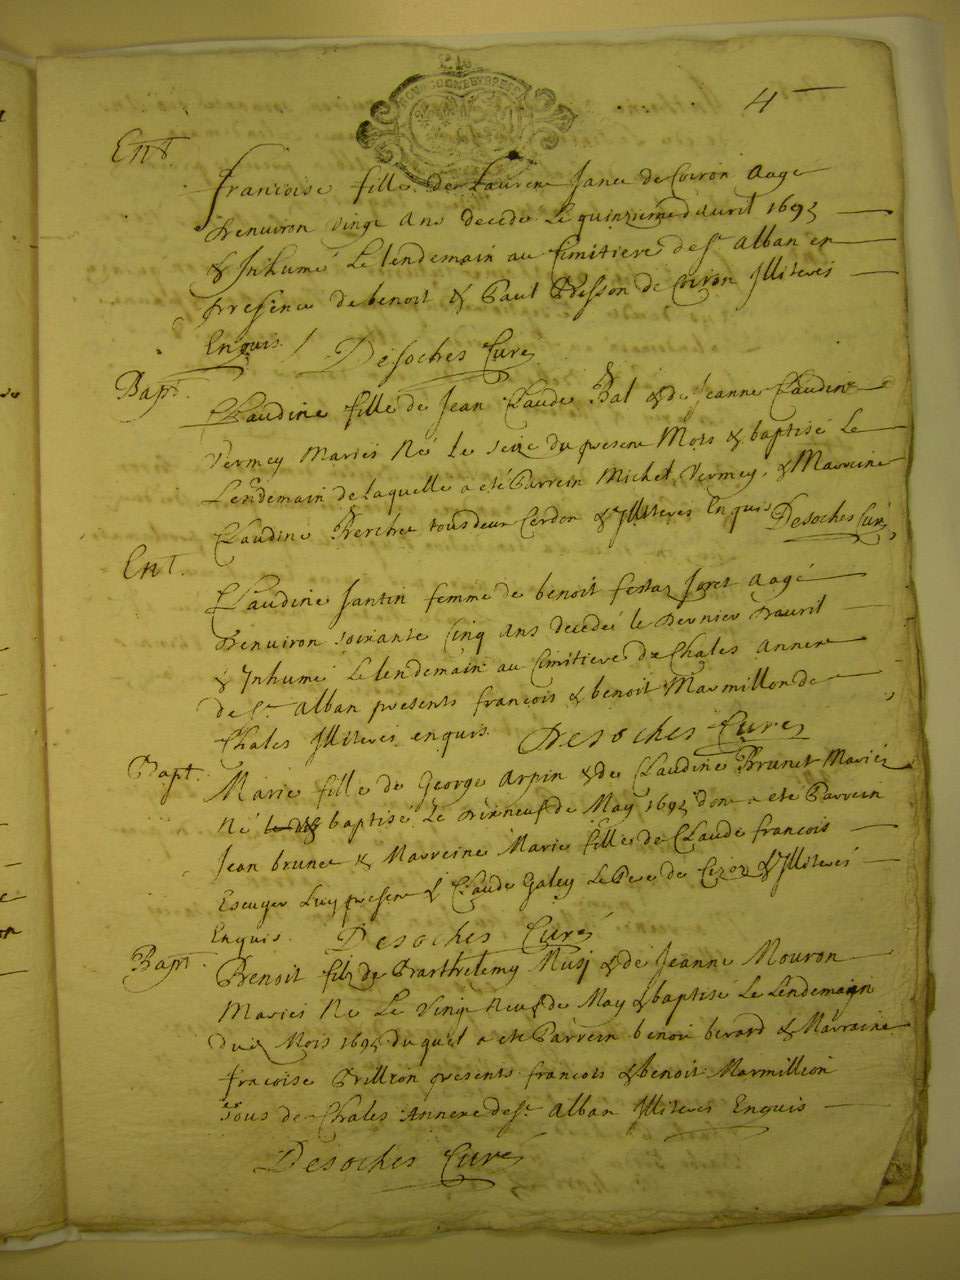 4
Ent
francoise fille de Laurens Jance de Coiron Aagé
d'enuiron vingt Ans decedee Le quinzieme d'auril 1695
& Inhumé Le lendemain au Cimitiere de St Alban en
presence de benoit & Paul Besson de Coiron Illiterés
Enquis / Desoches Curé
Bapt.
Claudine fille de Jean Claude Bal & de Jeanne Claudine
Vermey Mariés Né le seize du present Mois & baptisé Le
Lendemain de laquelle a eté Parrein Michel Vermey & Marreine
Claudine Berchet tous deux Cerdon & Illiterés Enquis Desoches Curé
Ent.
Claudine Jantin femme de benoit Joret Aagé
d'enuiron soixante Cinq Ans decedeé le Dernier d'auril
& Inhumé Le lendemain au Cimitiere de Chales Annexe
de St Alban presents francois & benoit Marmillon de
Chales Illiterés enquis Desoches Curé
Bapt.
Marie fille de George Arpin & de Claudine Brunet Mariés
Né baptisé Le dixneuf de May 1695 dont a eté Parrein
Jean brunet & Marreine Marie fille de Claude francois
Escuyer Luy present & Claude Galey Le Pere de & Illiterés
Enquis. Desoches Curé
Bapt.
Benoit filz de Barthelemy Musj & de Jeanne Mouron
Mariés Né Le Vingt Neuf de May & baptisé Le Lendemain
du Mois 1695 duquel a eté Parrein benoit berard & Marraine
fracoise Brillion presents francois & benoit Marmillion
tous de Chales Annexe de St Alban Illiterés Enquis
Desoches Curé